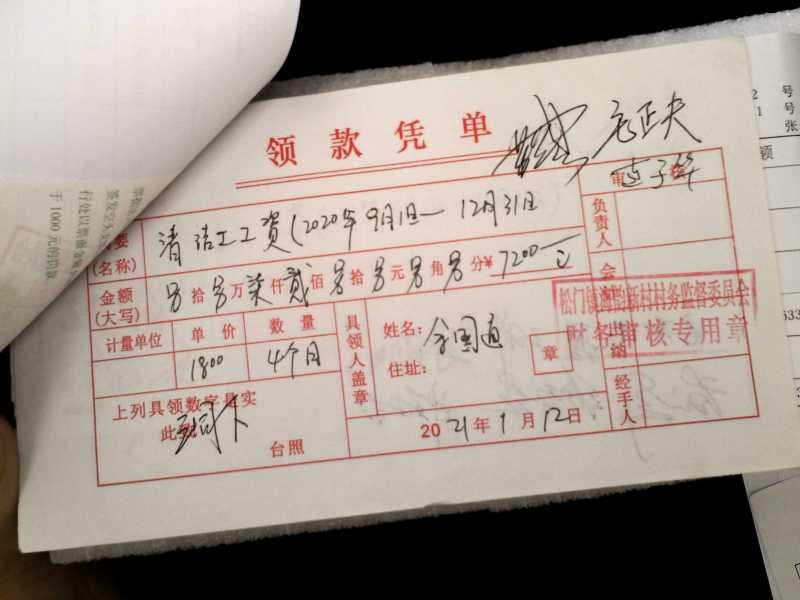 领款凭单
要
(名称)
清洁工工资(2020年9月1日—12月31日
金额
(大写)
拾 万 柒 仟 贰 佰 拾 元 角 分¥ 7200一元
计量单位 单价 数量
1800 4个月
上列具领数字是实
此
台照
具领人盖章
姓名:
住址:
章
2021年1月12日
审
负责人
会
出纳
经手人
松门镇海韵新村村务监督委员会
财务审核专用章
签发空头支
行处以票面金额
于1000元的罚款
号
号
张
额